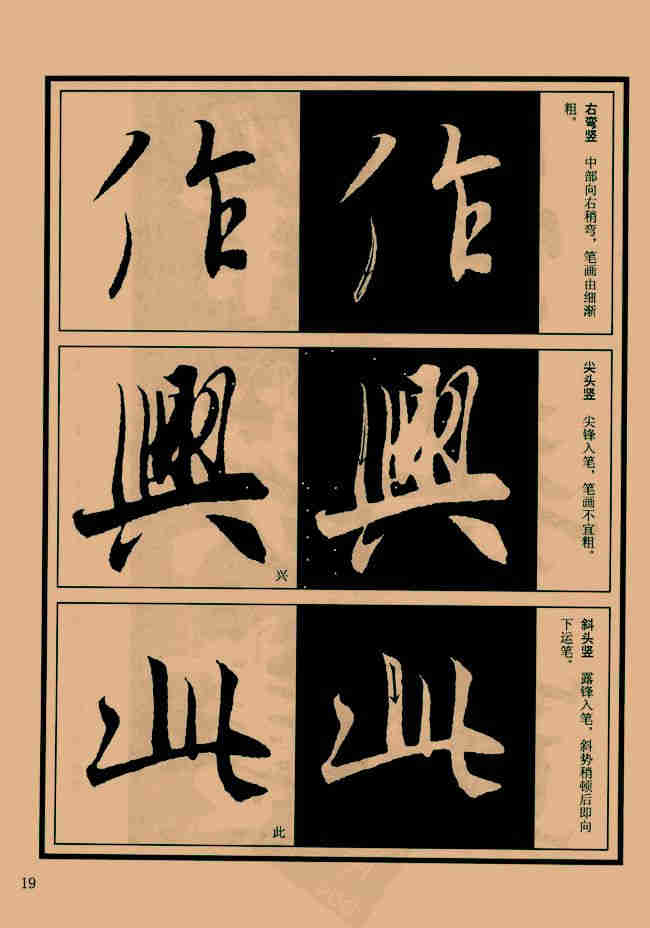 作
作
右弯竖 中部向右稍弯，笔画由细渐
粗。
興
兴
興
尖头竖 尖锋入笔，笔画不宜粗。
此
此
此
斜头竖 露锋入笔，斜势稍顿后即向
下运笔。
19